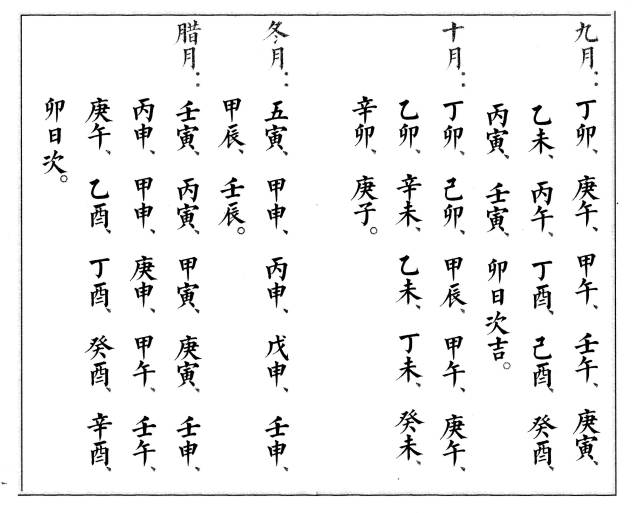 九月：丁卯、庚午、甲午、壬午、庚寅、
乙未、丙午、丁酉、己酉、癸酉、
丙寅、壬寅、卯日次吉。
十月：丁卯、己卯、甲辰、甲午、庚午、
乙卯、辛未、乙未、丁未、癸未、
辛卯、庚子。
冬月：五寅、甲申、丙申、戊申、壬申、
甲辰、壬辰。
腊月：壬寅、丙寅、甲寅、庚寅、壬申、
丙申、甲申、庚申、甲午、壬午、
庚午、乙酉、丁酉、癸酉、辛酉、
卯日次。